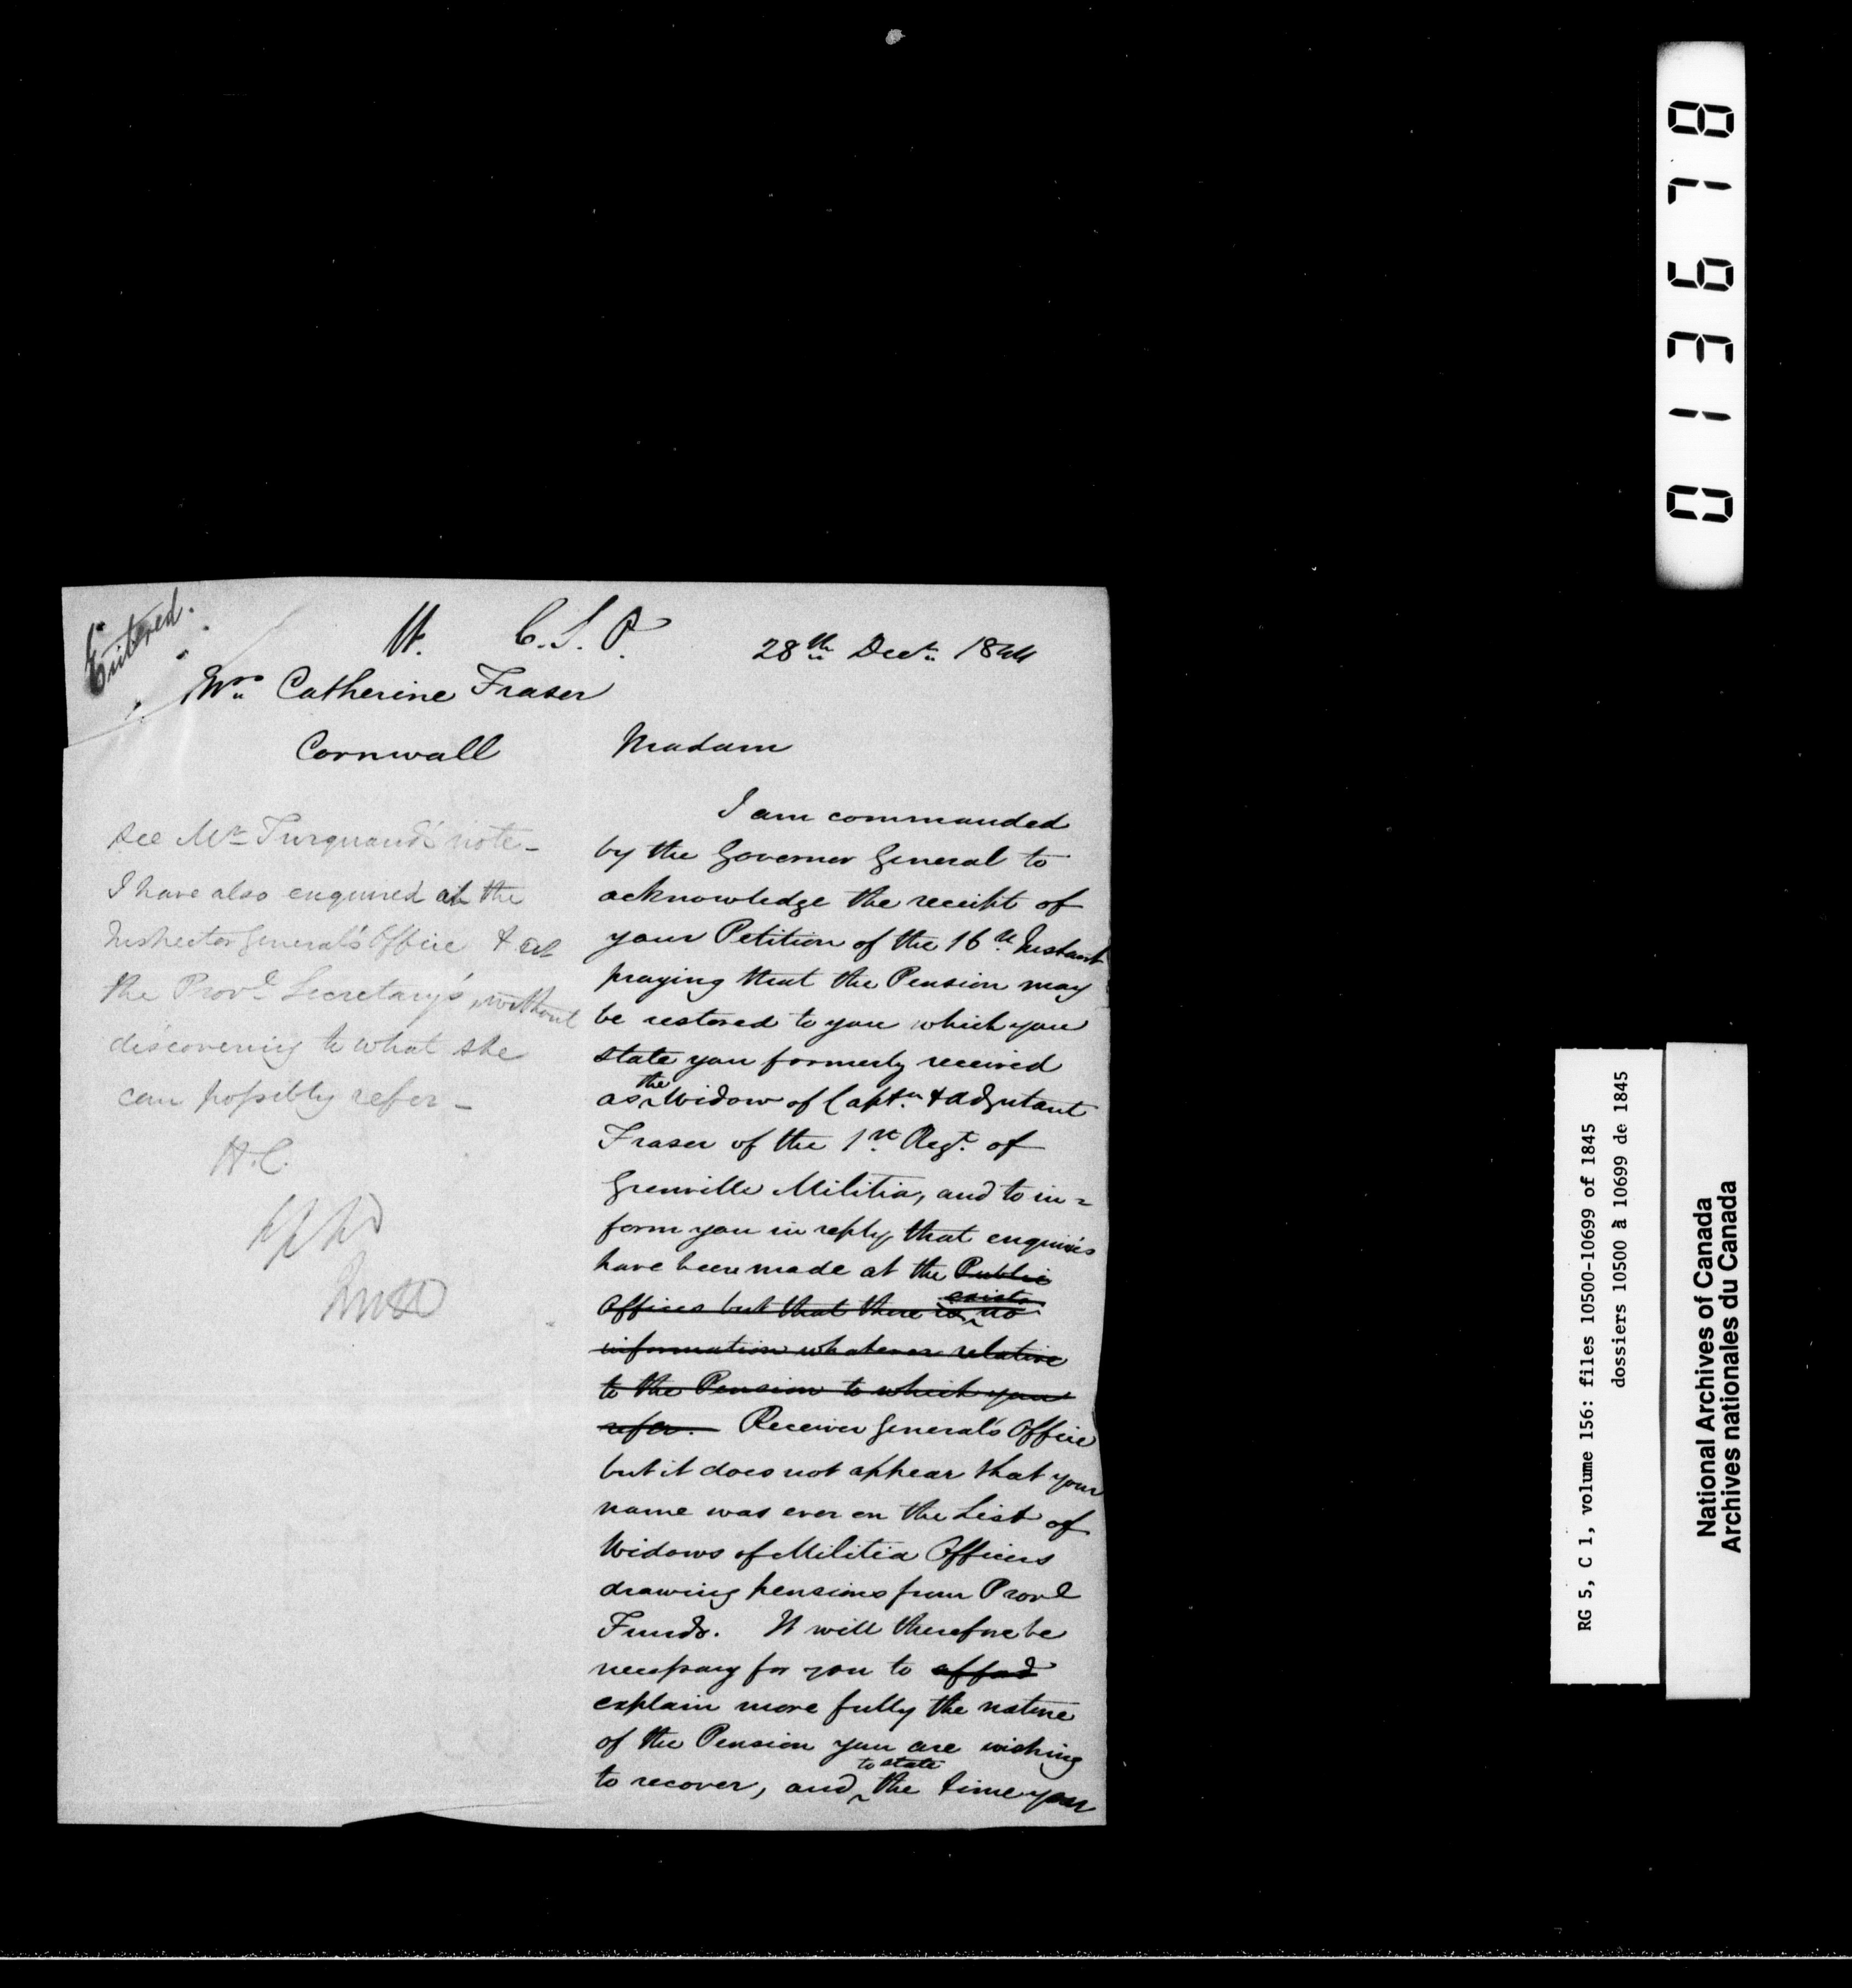 Entered.
C.S.P.
28th Decr. 1844
Mrs. Catherine Fraser
Cornwall
Madam
I am commanded
by the Governor General to
acknowledge the receipt of
your Petition of the 16th Instant
praying that the Pension may
be restored to you which you
state you formerly received
as the Widow of Captn. & adjutant
Fraser of the 1st Regt. of
Grenville Militia, and to in=
form you in reply, that enquiries
have been made at the Public
Offices but that there is exists no
information whatever relative
to the Pension to which you
refer. Receiver General's Office
but it does not appear that your
name was ever on the List of
Widows of Militia Officers
drawing pensions from Provl
Funds. It will therefore be
necessary for you to afford
explain more fully the nature
of the Pension you are wishing
to recover, and to state the time you
see Mr Turquand's note -
I have also enquired at the
Inspector General's Office & at
the Provl Secretary's, without
discovering to what she
can possibly refer -
H.C.
013678
RG 5, C 1, volume 156: files 10500-10699 of 1845
dossiers 10500 à 10699 de 1845
National Archives of Canada
Archives nationales du Canada